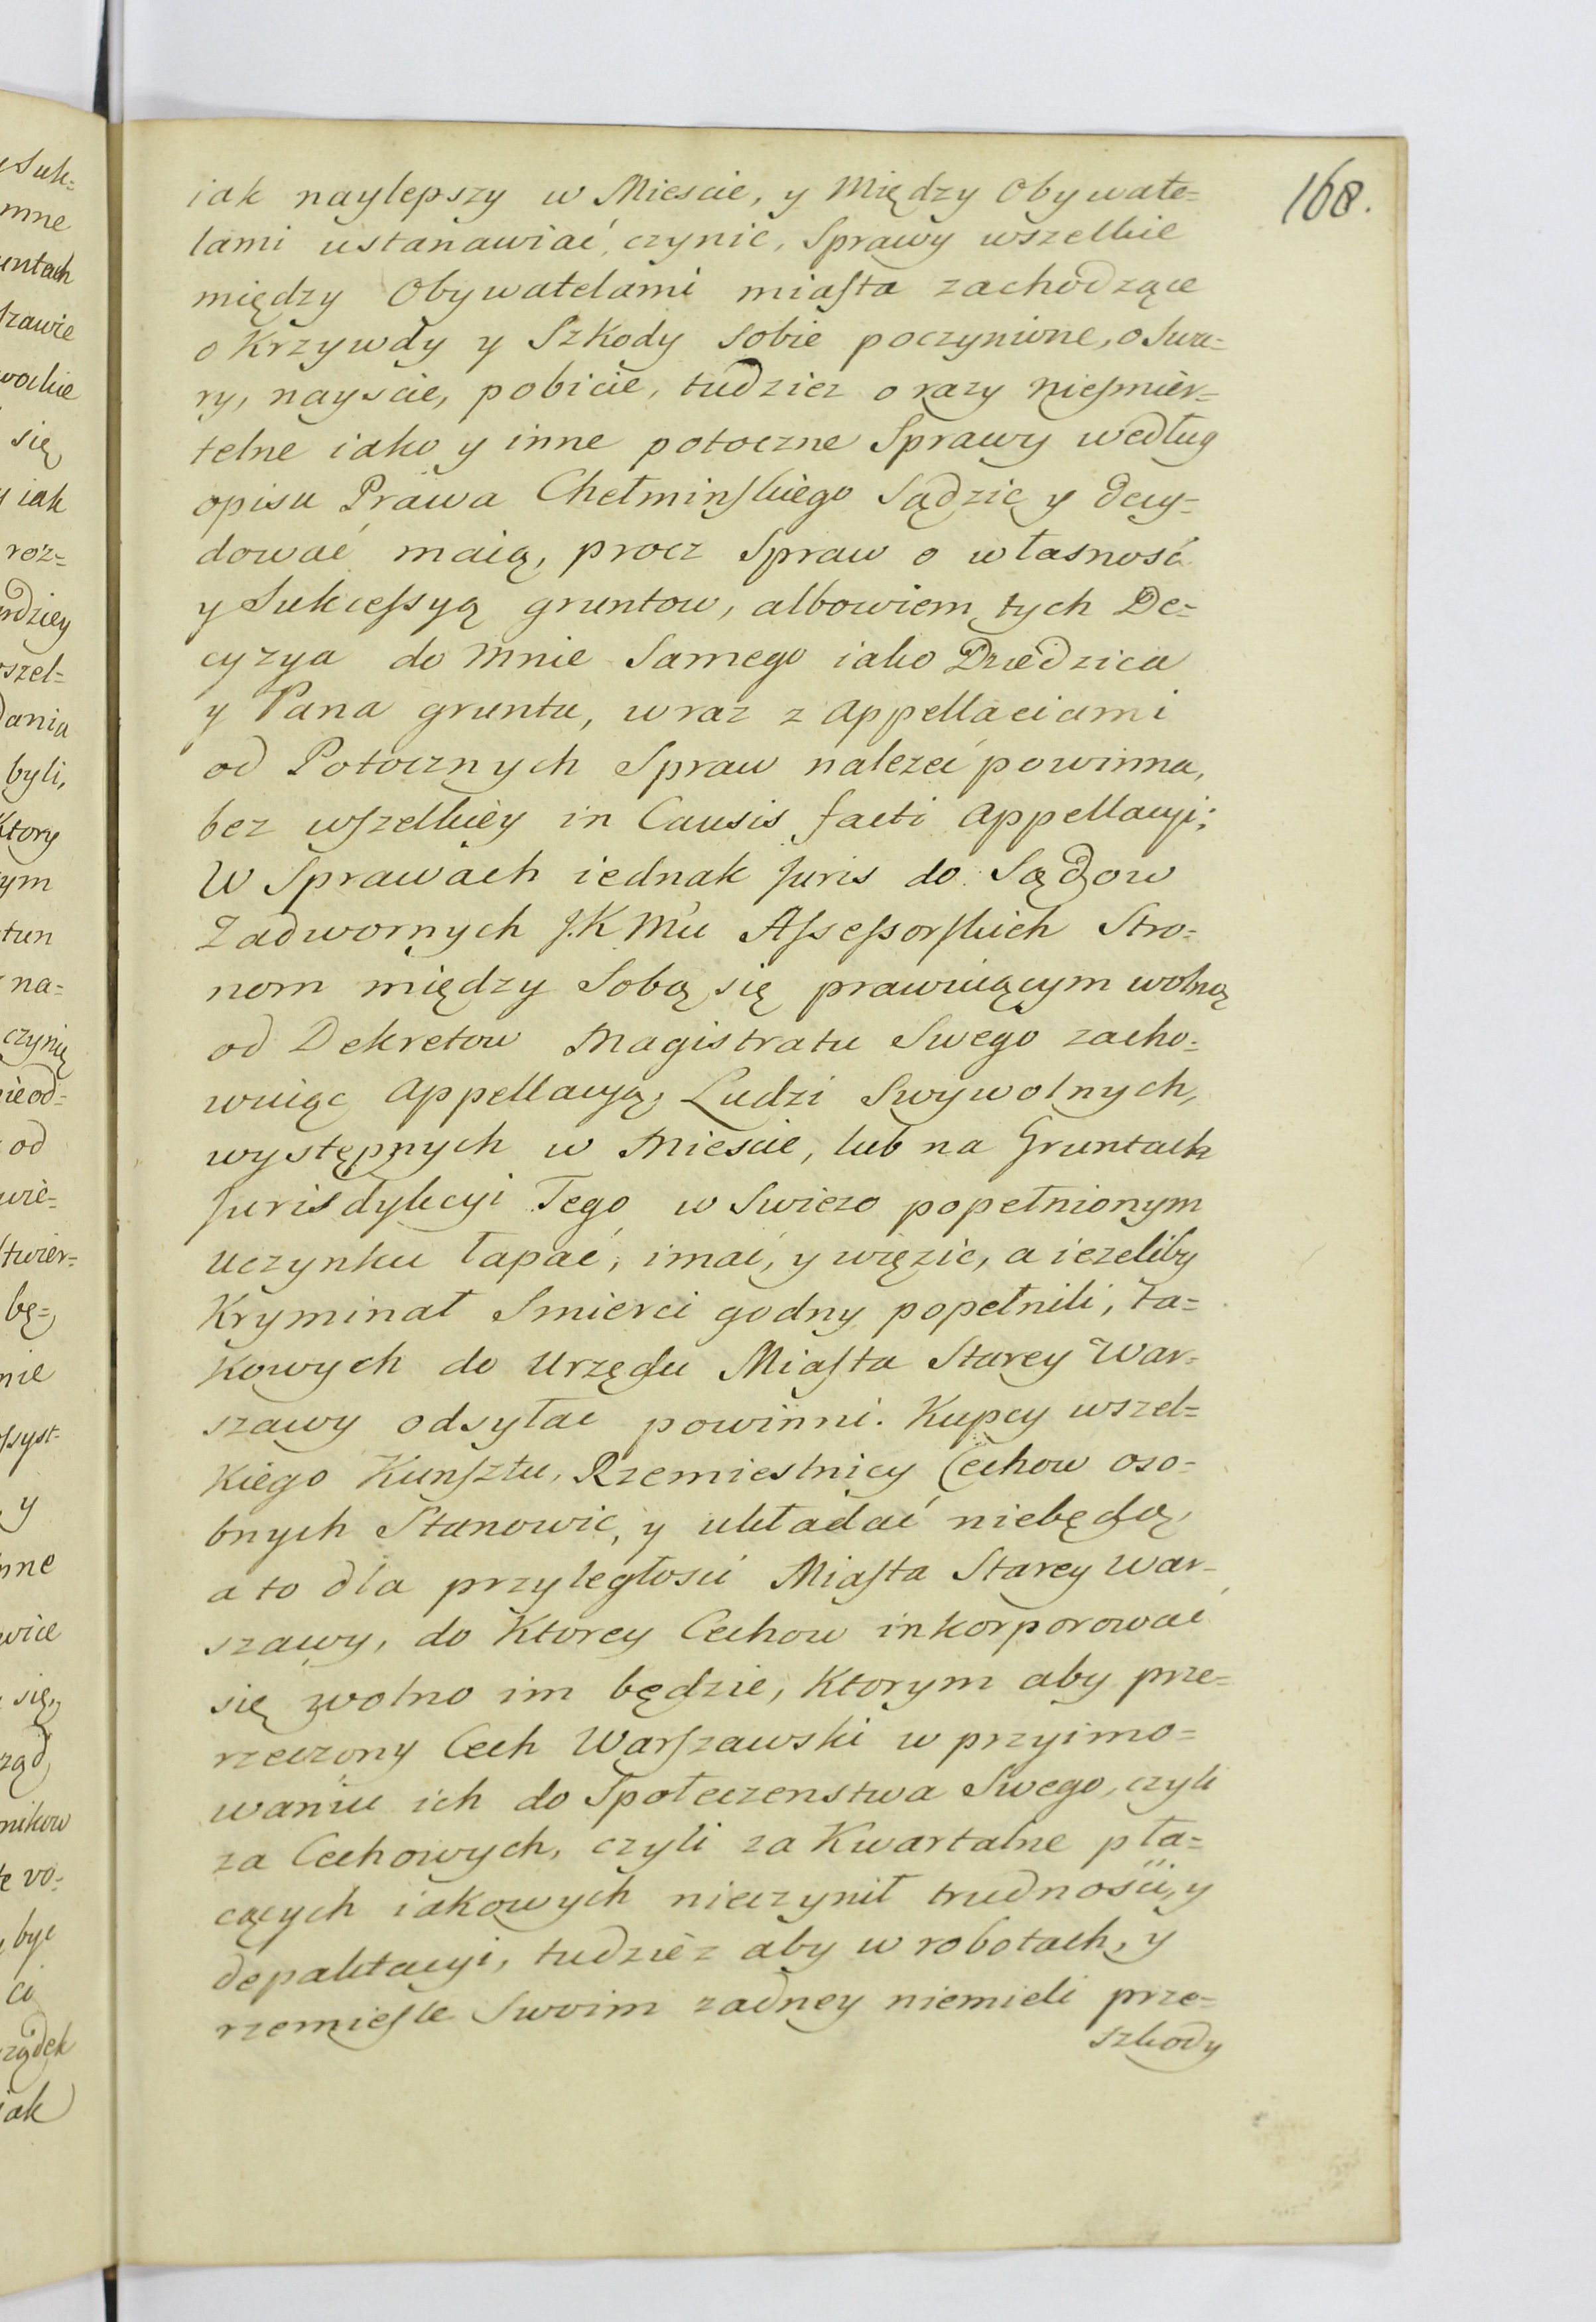 168.
iak naylepszy w Miescie, y Między Obywate=
lami ustanawiać, czynic, Sprawy wszelkie
między Obywatelami miasta zachodzące
o Krzywdy y Szkody sobie poczynione, o Swa=
ry, nayscie, pobicie, tudziez o razy niesmier=
telne iako y inne potoczne Sprawy według
opisu Prawa Chełminskiego Sądzic y decy=
dować maią, procz Spraw o własność
y Sukcessyą gruntow, albowiem tych De=
cyzya do mnie Samego iako Dziedzica
y Pana gruntu, wraz z appellaciami
od Potocznych Spraw nalezeć powinna,
bez wszelkiey in Causis facti appellacyi;
W Sprawach iednak Juris do Sądow
Zadwornych J.K Mci Assessorskich Stro=
nom między Sobą się prawuiącym wolną
od Dekretow Magistratu Swego zacho=
wuiąc appellacyą, Ludzi Swywolnych,
występnych w Miescie, lub na Gruntach
Jurisdykcyi Tego w Swiezo popełnionym
Uczynku łapać, imać, y więzic, a iezeliby
Kryminał Smierci godny popełnili, ta=
kowych do Urzędu Miasta Starey War=
szawy odsyłac powinni. Kupcy wszel=
kiego Kunsztu, Rzemiestnicy Cechow oso=
bnych Stanowic, y układać niebędą,
a to dla przyległosci Miasta Starey War=
szawy, do Ktorey Cechow inkorporować
się wolno im będzie, Ktorym aby prze=
rzeczony Cech Warszawski w przyimo=
waniu ich do Społeczenstwa Swego, czyli
za Cechowych, czyli za Kwartalne pła=
cących iakowych nieczynił trudnosci, y
depaktacyi, tudzież aby w robotach, y
rzemiesle Swoim zadney niemieli prze=
szkody
mne
się
y iak
roz=
byli,
ktory
na=
czynią
od
bę=
y
się,
być
iak